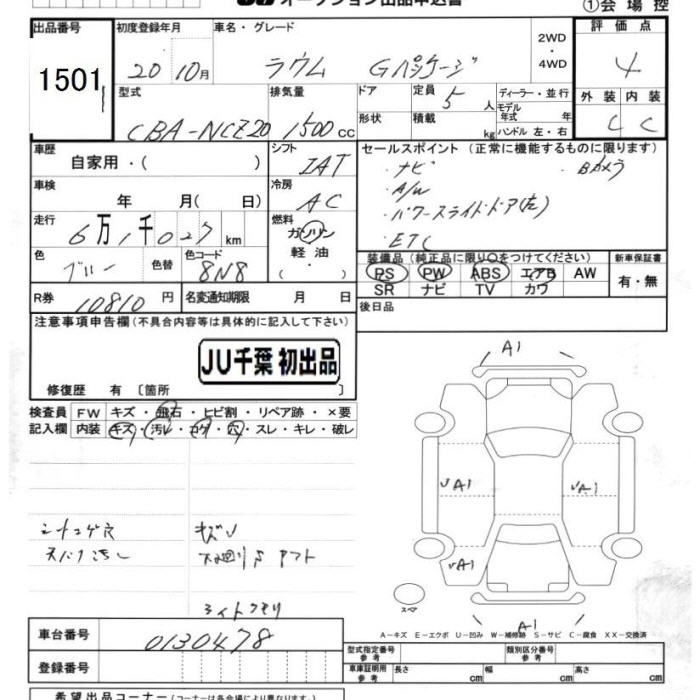 オークション出品申込書
①会場控
出品番号
1501
初度登録年月
20 10月
車名・グレード
ラウム Gパッケージ
2WD
・
4WD
評価点
4
外装 内装
4 C
型式
CBA-NCZ20
排気量
1500cc
ドア
形状
定員 5人
積載 kg
ディーラー・並行
モデル年式 年
ハンドル 左・右
車歴
自家用・( )
シフト
IAT
セールスポイント(正常に機能するものに限ります)
・ナビ ・Bカメラ
・A/W
・パワースライドドア(左)
・ETC
車検
年 月( 日)
冷房
AC
走行
6万1千027km
燃料
ガソリン
軽油
( ・ )
色
ブルー
色替
色コード
8N8
装備品(純正品に限り○をつけてください)
PS PW ABS エアB AW
SR ナビ TV カワ
新車保証書
有・無
R券
10810円
名変通知期限 月 日
後日品
注意事項申告欄(不具合内容等は具体的に記入して下さい)
JU千葉 初出品
修復歴 有〔箇所 〕
検査員 FW キズ・飛石・ヒビ割・リペア跡・×要
記入欄 内装 キズ・汚レ・コゲ・穴・スレ・キレ・破レ
A1
UA1 UA1
UA1
A1
スペア
シートコゲ穴 キズU
スパーク汚レ 下廻りサアフト
ライトクモリ
A-キズ E-エクボ U-凹み W-補修跡 S-サビ C-腐食 XX-交換済
車台番号
0130478
登録番号
型式指定番号 参考
類別区分番号 参考
車庫証明用 参考
長さ cm 幅 cm 高さ cm
希望出品コーナー(コーナーは各会場により異なります)